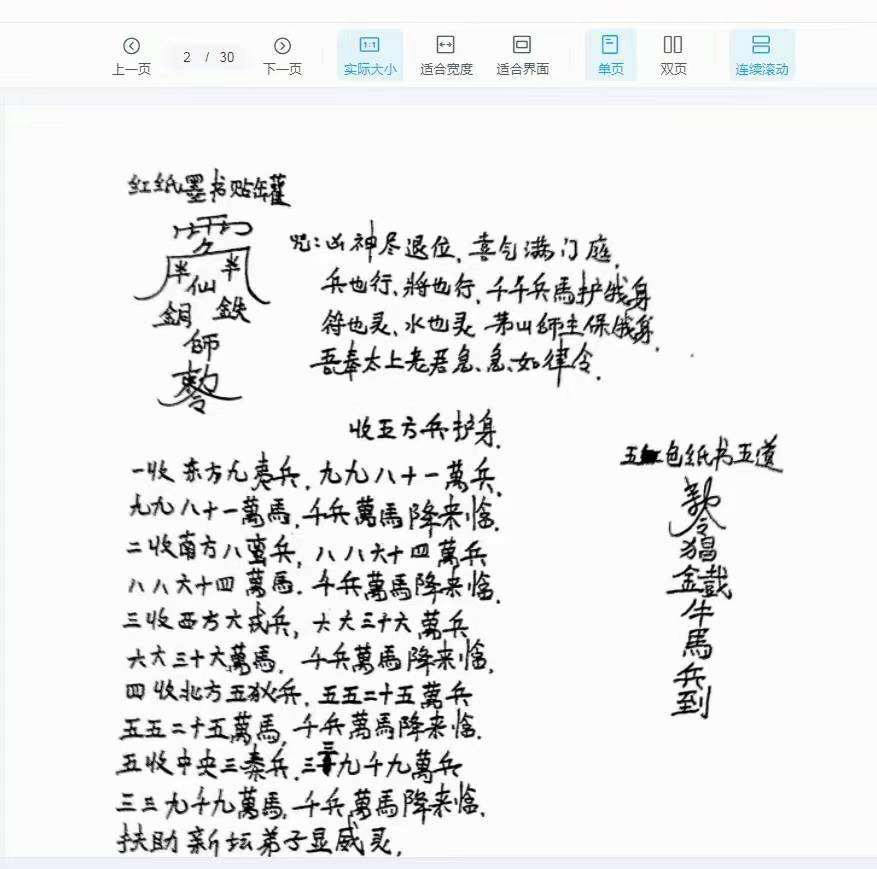 上一页
2 / 30
下一页
实际大小
适合宽度
适合界面
单页
双页
连续滚动
红纸墨书贴罐
半 仙 半
銅 鉄
師
咒：凶神尽退位，喜气满门庭，
兵也行、將也行，千千兵馬护我身
符也灵、水也灵 茅山師主保我身，
吾奉太上老君急、急如律令.
收五方兵护身
一收东方九夷兵，九九八十一萬兵，
九九八十一萬馬，千兵萬馬降来临.
二收南方八蛮兵，八八六十四萬兵
八八六十四萬馬．千兵萬馬降来临.
三收西方六戎兵，六六三十六萬兵
六六三十六萬馬．千兵萬馬降来临，
四收北方五狄兵，五五二十五萬兵
五五二十五萬馬，千兵萬馬降来临.
五收中央三秦兵．三三九千九萬兵
三三九千九萬馬，千兵萬馬降来临.
扶助新坛弟子显威灵，
五色纸书五道
猖
金戠
牛
馬
兵
到